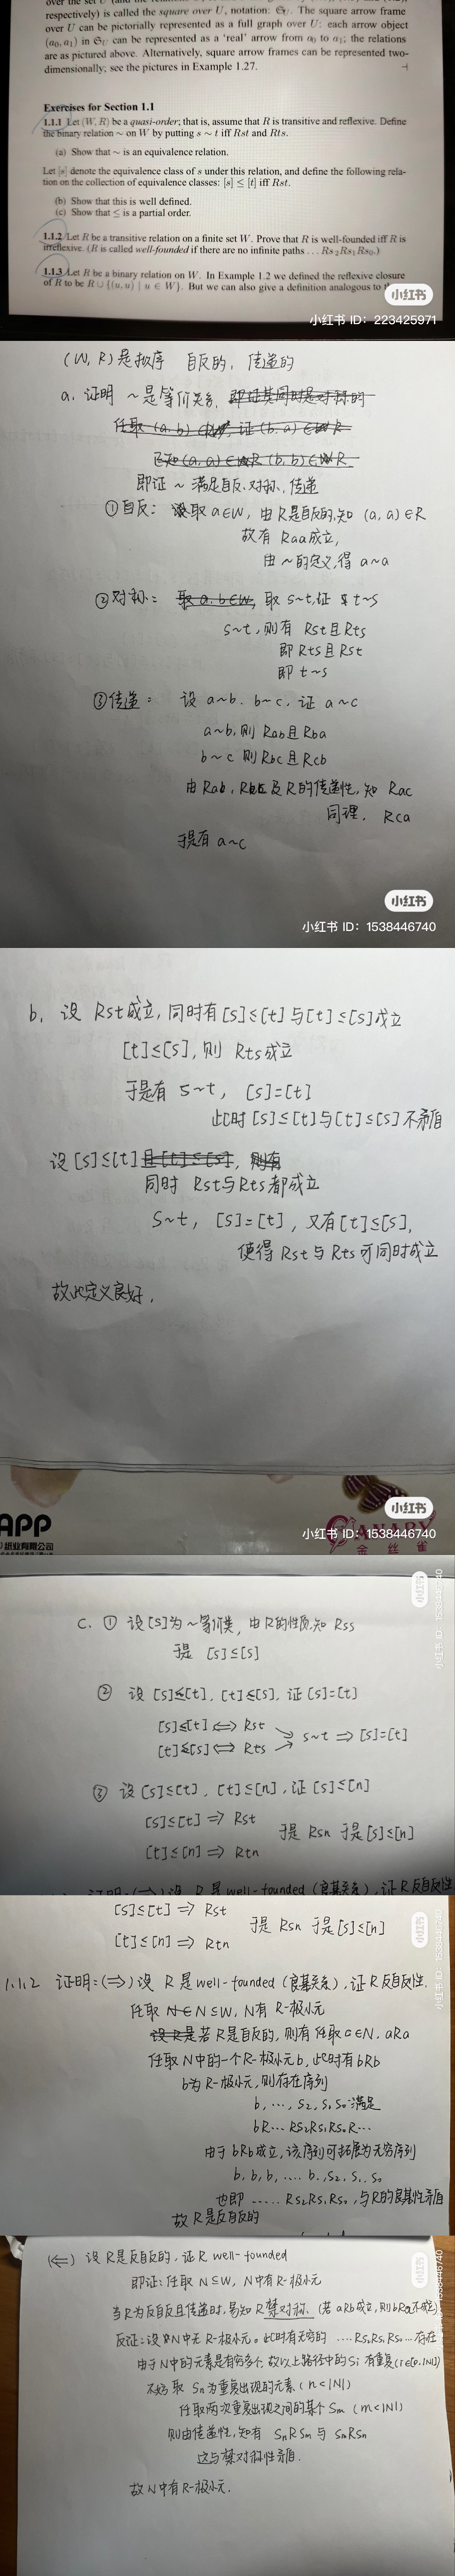 respectively) is called the square over U, notation: 𝔖U. The square arrow frame
over U can be pictorially represented as a full graph over U: each arrow object
(a₀, a₁) in 𝔖U can be represented as a 'real' arrow from a₀ to a₁; the relations
are as pictured above. Alternatively, square arrow frames can be represented two-
dimensionally; see the pictures in Example 1.27. ⊣
Exercises for Section 1.1
1.1.1 Let (W, R) be a quasi-order; that is, assume that R is transitive and reflexive. Define
the binary relation ∼ on W by putting s ∼ t iff Rst and Rts.
(a) Show that ∼ is an equivalence relation.
Let [s] denote the equivalence class of s under this relation, and define the following rela-
tion on the collection of equivalence classes: [s] ≤ [t] iff Rst.
(b) Show that this is well defined.
(c) Show that ≤ is a partial order.
1.1.2 Let R be a transitive relation on a finite set W. Prove that R is well-founded iff R is
irreflexive. (R is called well-founded if there are no infinite paths … Rs₂Rs₁Rs₀.)
1.1.3 Let R be a binary relation on W. In Example 1.2 we defined the reflexive closure
of R to be R ∪ {(u, u) | u ∈ W}. But we can also give a definition analogous to
小红书
小红书 ID: 223425971
(W, R)是拟序 自反的, 传递的
a. 证明 ~是等价关系, 即证其同时是对称的
任取 (a, b) ∈ R, 证 (b, a) ∈ R
已知 (a, a) ∈ R (b, b) ∈ R
即证 ~ 满足自反、对称、传递
①自反: 取 a∈W, 由R是自反的,知 (a, a)∈R
故有 Raa成立,
由~的定义,得 a~a
②对称: 取 a.b∈W, 取 s~t,证 t~s
s~t,则有 Rst且Rts
即 Rts且Rst
即 t~s
③传递: 设 a~b. b~c, 证 a~c
a~b,则 Rab且Rba
b~c 则 Rbc且Rcb
由Rab, Rbc及R的传递性,知 Rac
同理, Rca
于是有 a~c
小红书
小红书 ID: 1538446740
b. 设 Rst成立,同时有[s]≤[t]与[t]≤[s]成立
[t]≤[s],则 Rts成立
于是有 s~t, [s]=[t]
此时[s]≤[t]与[t]≤[s]不矛盾
设[s]≤[t]且[t]≤[s], 则有
同时 Rst与Rts都成立
s~t, [s]=[t], 又有[t]≤[s],
使得 Rst与 Rts可同时成立
故此定义良好.
APP
纸业有限公司
CANARY
金 丝 雀
小红书
小红书 ID: 1538446740
小红书
小红书 ID: 1538446740
C. ① 设[s]为~等价类, 由R的性质,知 Rss
于是 [s]≤[s]
② 设[s]≤[t], [t]≤[s], 证[s]=[t]
[s]≤[t] ⟺ Rst
[t]≤[s] ⟺ Rts
s~t ⟹ [s]=[t]
③ 设[s]≤[t], [t]≤[n], 证[s]≤[n]
[s]≤[t] ⟹ Rst
于是 Rsn 于是[s]≤[n]
[t]≤[n] ⟹ Rtn
证明:(⟹)设 R是well-founded(良基关系),证R反自反性
[s]≤[t] ⟹ Rst
于是 Rsn 于是[s]≤[n]
[t]≤[n] ⟹ Rtn
小红书
小红书 ID: 1538446740
1.1.2 证明:(⟹)设 R是well-founded(良基关系),证R反自反性.
任取 N∈ N⊆W, N有 R-极小元
设R是若R是自反的,则有任取a∈N. aRa
任取N中的一个R-极小元b,此时有bRb
b为R-极小元,则存在序列
b, …, s₂, s₁ s₀满足
bR… RS₂RS₁RS₀R…
由于bRb成立,该序列可拓展为无穷序列
b, b, b, …. b, s₂, s₁. s₀
也即 ….. Rs₂Rs₁Rs₀, 与R的良基性矛盾
故R是反自反的
小红书
小红书 ID: 1538446740
(⟸) 设R是反自反的,证R well-founded
即证:任取 N⊆W, N中有R-极小元
当R为反自反且传递时,易知R禁对称. (若aRb成立,则bRa不成立)
反证:设N中无R-极小元。此时有无穷的 ….Rs₂Rs₁Rs₀…存在
由于N中的元素是有穷多个,故以上路径中的Si有重复(i∈[0,|N|])
不妨取 Sn为重复出现的元素(n<|N|)
任取两次重复出现之间的某个Sm (m<|N|)
则由传递性,知有 SnRSm与 SmRSn
这与禁对称性矛盾.
故N中有R-极小元.